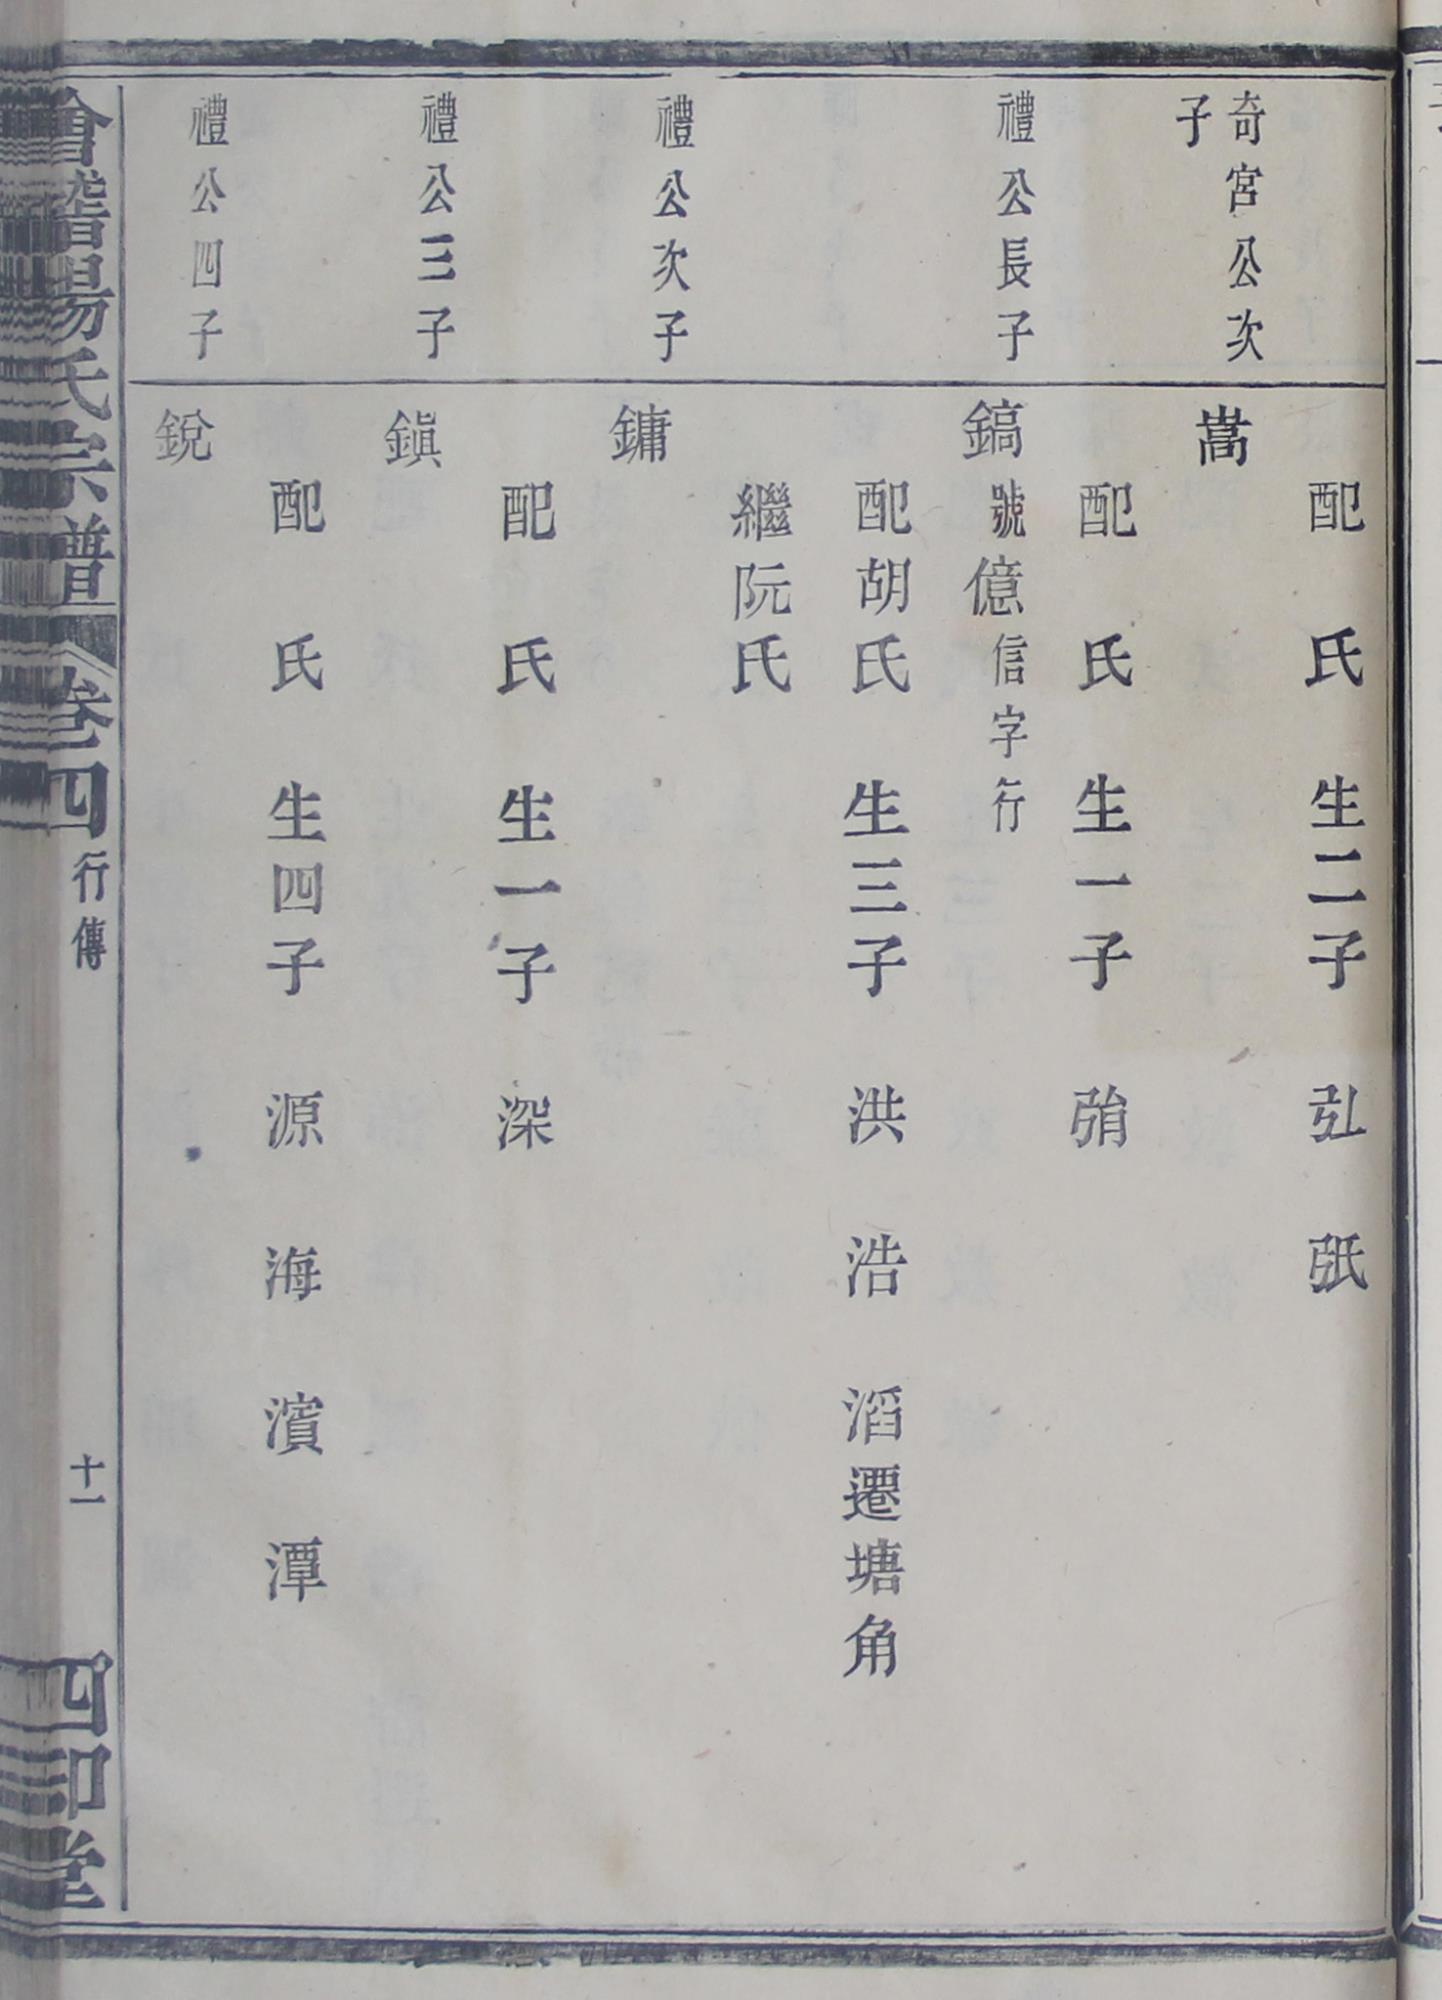 配　氏　生二子　弘　弤
奇宮公次
子
嵩
配　氏　生一子　弰
禮公長子
鎬號億信字行
配胡氏　生三子　洪　浩　滔遷塘角
繼阮氏
禮公次子
鏞
配　氏　生一子　深
禮公三子
鎭
配　氏　生四子　源　海　濱　潭
禮公四子
銳
會稽楊氏宗譜　卷四　行傳　十一　四印堂